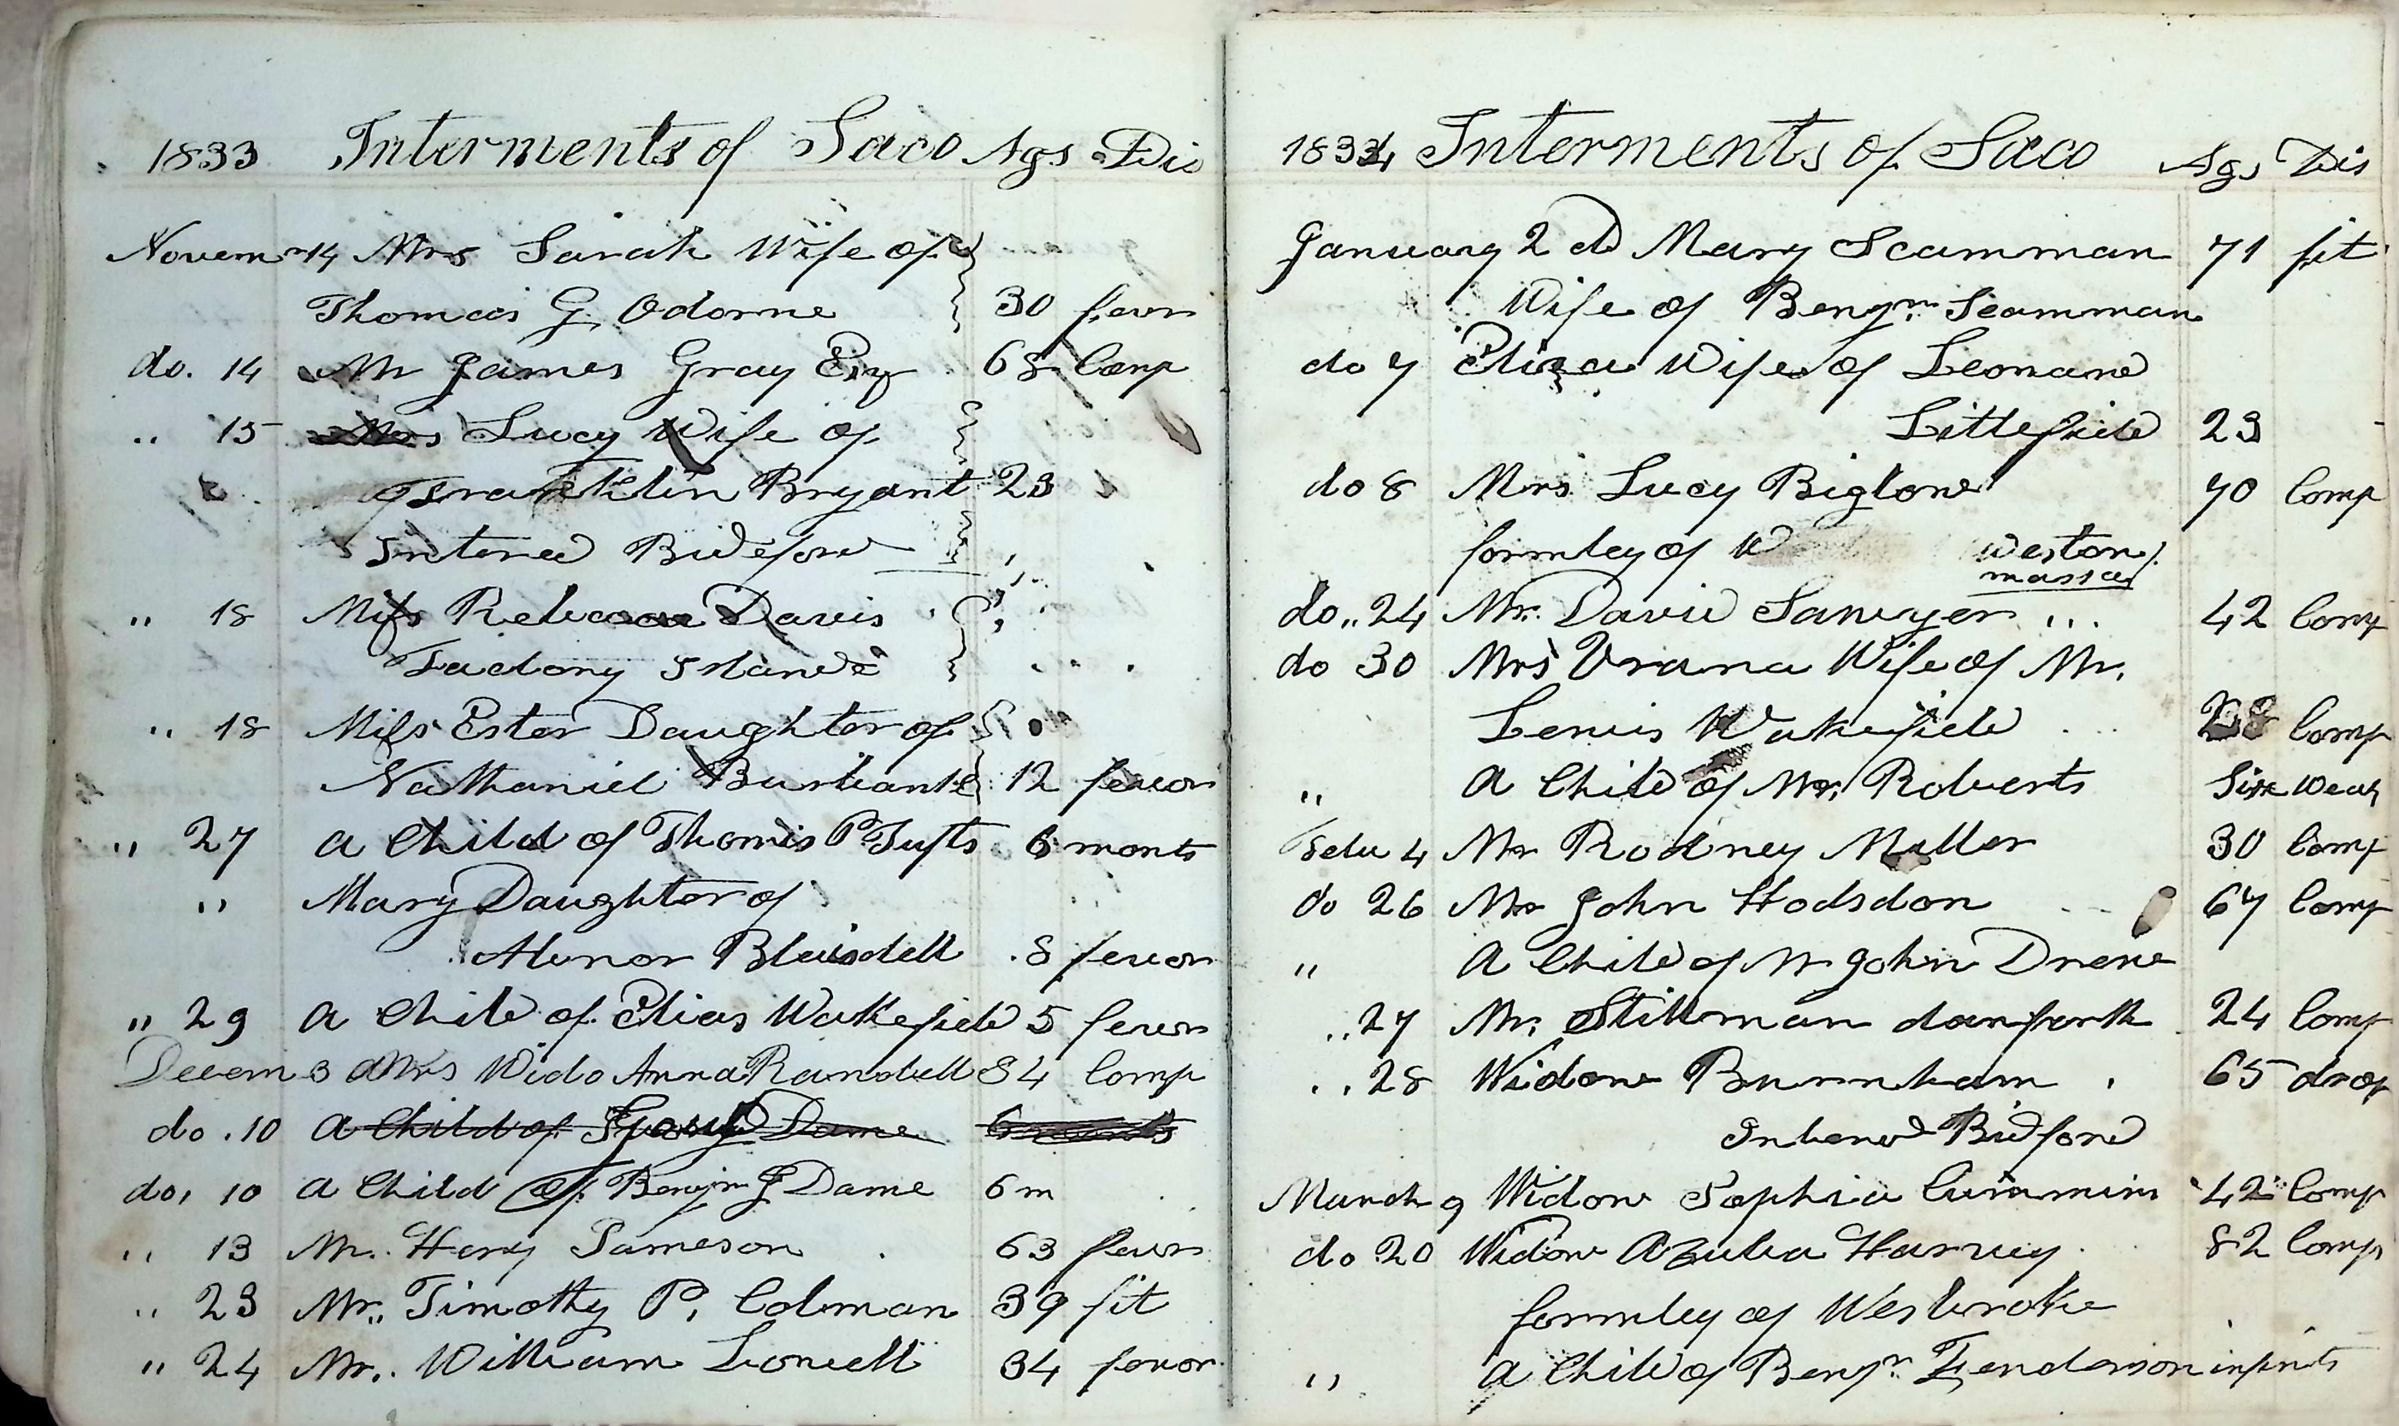 1833 Interments of Saco Ags Dis
Novem 14 Mrs Sarah Wife of
Thomas G. Odorne 30 fever
do. 14 Mr James Gray Esq 68 Comp
" 15 Mrs Lucy Wife of
Franklin Bryant 23
Intered Bideford
" 18 Miss Rebecca Davis
Factory Island
" 18 Miss Ester Daughter of
Nathaniel Burbank 12 fevor
" 27 a Child of Thomis P Tufts 6 monts
" Mary Daughter of
Abner Blaisdell 8 fevor
" 29 a Child of Elias Wakefield 5 fevor
Decem 3 Mrs Wido Anna Randell 84 Comp
do. 10 a Child of Dame 6 monts
do, 10 a Child of Benjm G Dame 6 m
" 13 Mr. Hery Jameson 63 fevor
" 23 Mr. Timothy P. Colman 39 fit
" 24 Mr. William Lowell 34 fevor
1834 Interments of Saco Ags Dis
January 2 d Mary Scamman 71 fit
Wife of Benjm. Scamman
do 7 Eliza Wife of Leonard
Littlefield 23
do 8 Mrs Lucy Biglow 70 Comp
formley of W Weston
massa
do " 24 Mr. David Sawyer ... 42 Comp
do 30 Mrs Urana Wife of Mr.
Lewis Wakefield 28 Comp
" a Child of Mr. Roberts Six Weak
Febu 4 Mr Rodney Miller 30 Comp
do 26 Mr John Hodsdon 67 Comp
" a Child of Mr John Drew
" 27 Mr. Stillman danforth 24 Comp
" 28 Widow Burnham 65 drop
Intered Bidford
March 9 Widow Sophia Cummins 42 Comp
do 20 Widow Azuba Harvey 82 Comp
formley of Wesbroke
" a Child of Benjn. Fenderson infints